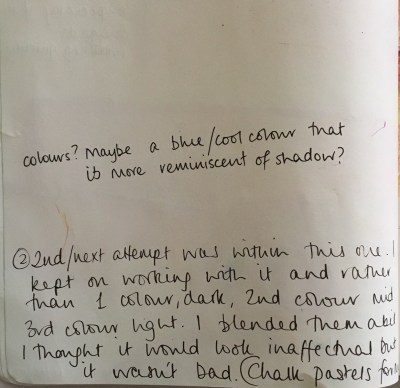 colours? Maybe a blue/cool colour that
is more reminiscent of shadow?
② 2nd/next attempt was within this one. I
kept on working with it and rather
than 1 colour, dark, 2nd colour mid
3rd colour light. I blended them a bit
I thought it would look inaffectual but
it wasn't bad. (Chalk pastels for